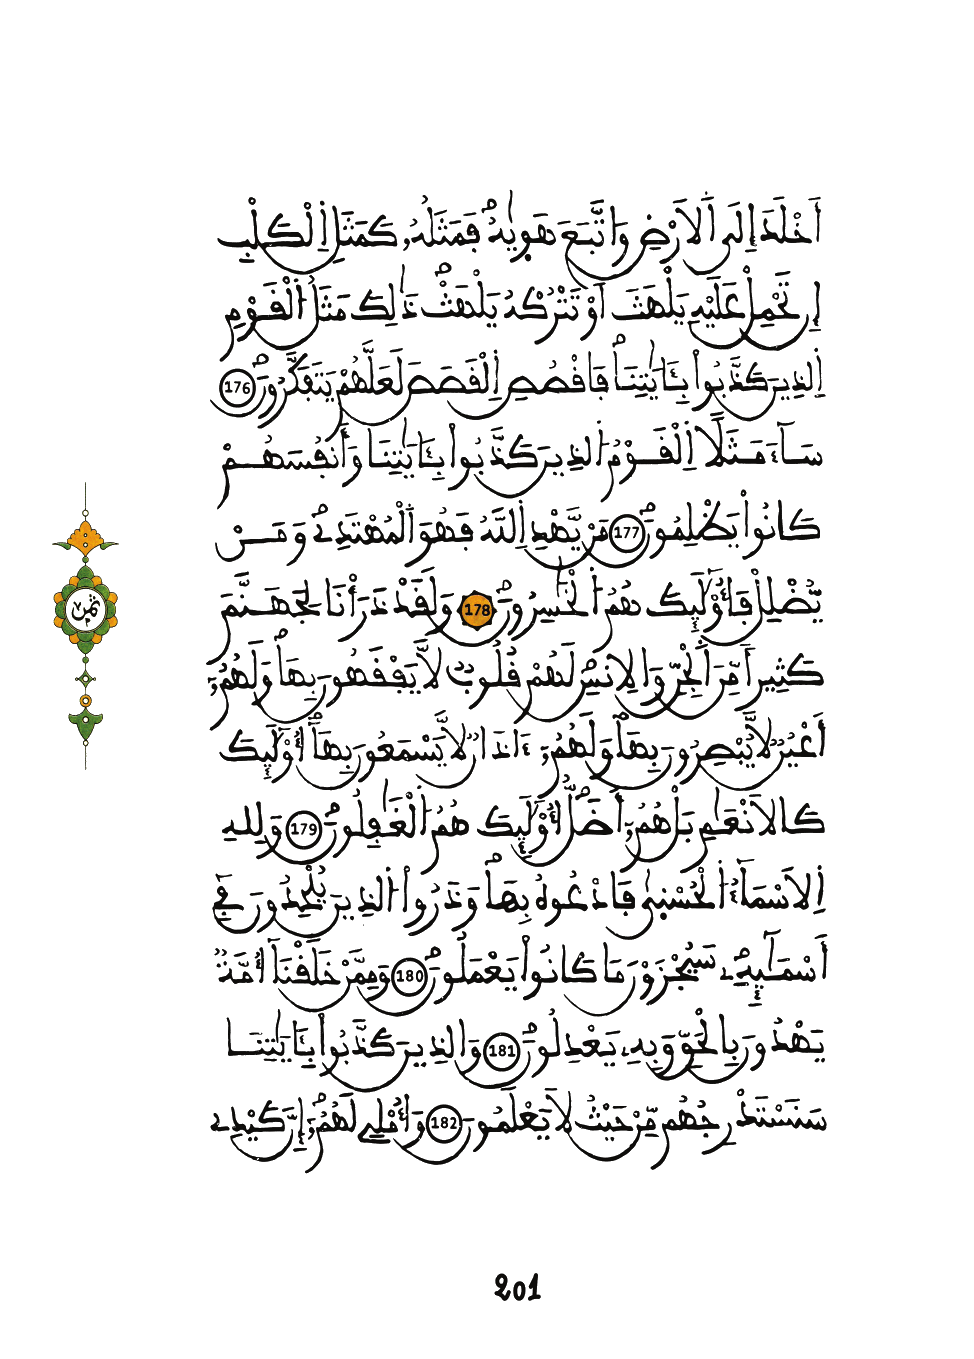 أَخْلَدَ إِلَى اَلَارْضِ وَاتَّبَعَ هَوٜىٰهُۖ فَمَثَلُهُۥ كَمَثَلِ اِلْكَلْبِ
إِن تَحْمِلْ عَلَيْهِ يَلْهَثَ اَوْ تَتْرُكْهُ يَلْهَثۖ ذَّٰلِكَ مَثَلُ اُلْقَوْمِ
اِلذِينَ كَذَّبُواْ بِـَٔايَٰتِنَاۖ فَاقْصُصِ اِلْقَصَصَ لَعَلَّهُمْ يَتَفَكَّرُونَۖ 176
سَآءَ مَثَلًا اِلْقَوْمُ اُلذِينَ كَذَّبُواْ بِـَٔايَٰتِنَا وَأَنفُسَهُمْ
كَانُواْ يَظْلِمُونَۖ 177 مَنْ يَّهْدِ اِللَّهُ فَهُوَ اَلْمُهْتَدِےۖ وَمَنْ
يُّضْلِلْ فَأُوْلَٰٓئِكَ هُمُ اُلْخَٰسِرُونَۖ 178 وَلَقَدْ ذَرَأْنَا لِجَهَنَّمَ
كَثِيراً مِّنَ اَلْجِنِّ وَالِانسِ لَهُمْ قُلُوبٌ لَّا يَفْقَهُونَ بِهَاۖ وَلَهُمُۥٓ
أَعْيُنٌ لَّا يُبْصِرُونَ بِهَاۖ وَلَهُمُۥٓ ءَاذَانٌ لَّا يَسْمَعُونَ بِهَآۖ أُوْلَٰٓئِكَ
كَالَانْعَٰمِ بَلْ هُمُۥٓ أَضَلُّۖ أُوْلَٰٓئِكَ هُمُ اُلْغَٰفِلُونَۖ 179 وَلِلهِ
اِلَاسْمَآءُ اُلْحُسْنٜىٰ فَادْعُوهُ بِهَاۖ وَذَرُواْ اُلذِينَ يُلْحِدُونَ فِےٓ
أَسْمَٰٓئِهِۦۖ سَيُجْزَوْنَ مَا كَانُواْ يَعْمَلُونَۖ 180 وَمِمَّنْ خَلَقْنَآ أُمَّةٌ
يَهْدُونَ بِالْحَقِّ وَبِهِۦ يَعْدِلُونَۖ 181 وَالذِينَ كَذَّبُواْ بِـَٔايَٰتِنَا
سَنَسْتَدْرِجُهُم مِّنْ حَيْثُ لَا يَعْلَمُونَ 182 وَأُمْلِے لَهُمُۥٓۖ إِنَّ كَيْدِے
ثمن
201